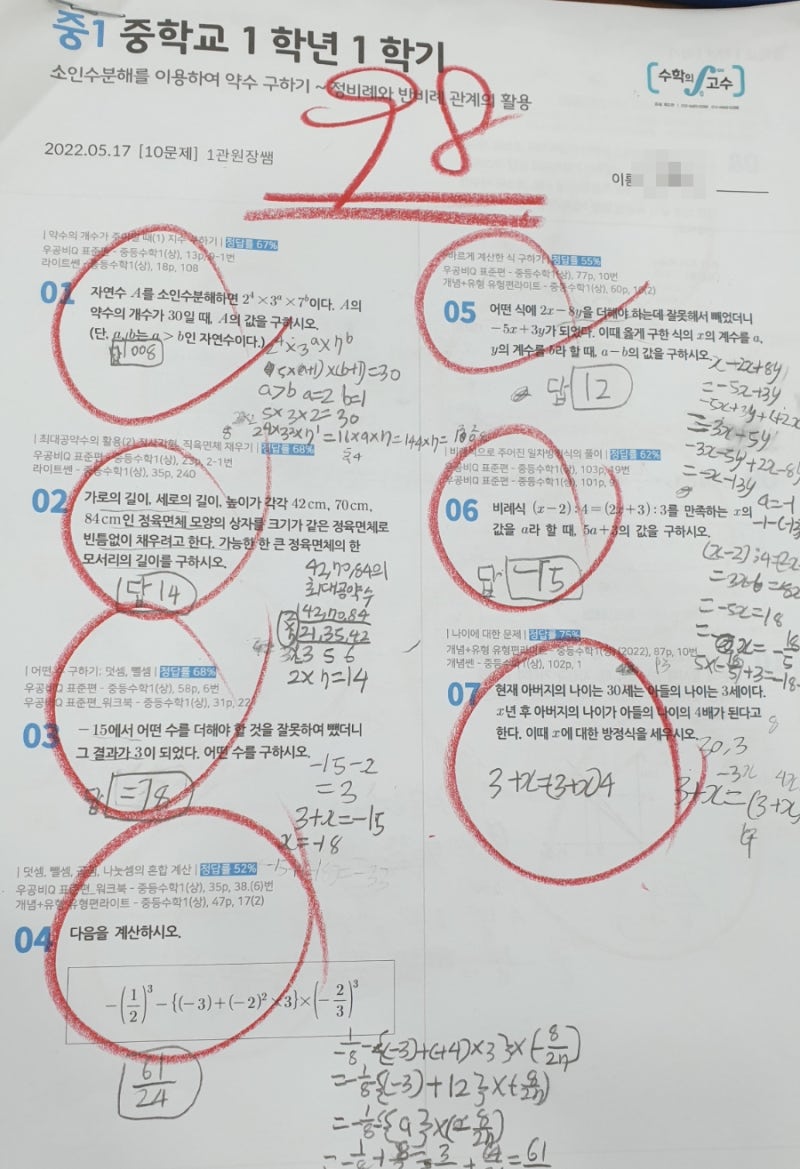 중1 중학교 1 학년 1 학기
소인수분해를 이용하여 약수 구하기 ~ 정비례와 반비례 관계의 활용
98
수학의 고수
2022.05.17 [10문제] 1관원장쌤
이름
| 약수의 개수가 주어질 때(1) 지수 구하기 | 정답률 67%
우공비Q 표준편 - 중등수학1(상), 13p, 9-1번
라이트쎈 - 중등수학1(상), 18p, 108
01 자연수 A를 소인수분해하면 2⁴×3ᵃ×7ᵇ이다. A의
약수의 개수가 30일 때, A의 값을 구하시오.
(단, a, b는 a > b인 자연수이다.)
답 1008
2⁴×3ᵃ×7ᵇ
5×(a+1)×(b+1)=30
a>b a=2 b=1
5×3×2=30
2⁴×3²×7¹=16×9×7=144×7=1008
| 최대공약수의 활용(2) 직사각형, 직육면체 채우기 | 정답률 68%
우공비Q 표준편 - 중등수학1(상), 23p, 2-1번
라이트쎈 - 중등수학1(상), 35p, 240
02 가로의 길이, 세로의 길이, 높이가 각각 42cm, 70cm,
84cm인 직육면체 모양의 상자를 크기가 같은 정육면체로
빈틈없이 채우려고 한다. 가능한 한 큰 정육면체의 한
모서리의 길이를 구하시오.
답 14
42,70,84의
최대공약수
2 42,70,84
7 21,35,42
3 5 6
2×7=14
| 어떤 수 구하기; 덧셈, 뺄셈 | 정답률 68%
우공비Q 표준편 - 중등수학1(상), 58p, 6번
우공비Q 표준편_워크북 - 중등수학1(상), 31p, 22
03 −15에서 어떤 수를 더해야 할 것을 잘못하여 뺐더니
그 결과가 3이 되었다. 어떤 수를 구하시오.
답 -18
-15-2
=3
3+x=-15
x=-18
| 덧셈, 뺄셈, 곱셈, 나눗셈의 혼합 계산 | 정답률 52%
우공비Q 표준편_워크북 - 중등수학1(상), 35p, 38.(6)번
개념+유형 유형편라이트 - 중등수학1(상), 47p, 17(2)
04 다음을 계산하시오.
−(1/2)³−{(−3)+(−2)²×3}×(−2/3)³
61/24
-1/8-{(-3)+(+4)×3}×(-8/27)
=-1/8-{(-3)+12}×(-8/27)
=-1/8-{9}×(-8/27)
| 바르게 계산한 식 구하기 | 정답률 55%
우공비Q 표준편 - 중등수학1(상), 77p, 10번
개념+유형 유형편라이트 - 중등수학1(상), 60p, 10(2)
05 어떤 식에 2x−8y을 더해야 하는데 잘못해서 빼었더니
−5x+3y가 되었다. 이때 옳게 구한 식의 x의 계수를 a,
y의 계수를 b라 할 때, a−b의 값을 구하시오.
답 12
x-2x+8y
=-5x+3y
=-3x-5y
-3x-5y+2x-8y
=-x-13y
a=-1
| 비례식으로 주어진 일차방정식의 풀이 | 정답률 62%
우공비Q 표준편 - 중등수학1(상), 103p, 19번
06 비례식 (x−2):4=(2x+3):3를 만족하는 x의
값을 a라 할 때, 5a+3의 값을 구하시오.
답 -15
=-5x=18
| 나이에 대한 문제 | 정답률 75%
개념+유형 유형편라이트 - 중등수학1(상)(2022), 87p, 10번
개념쎈 - 중등수학1(상), 102p, 1
07 현재 아버지의 나이는 30세는 아들의 나이는 3세이다.
x년 후 아버지의 나이가 아들의 나이의 4배가 된다고
한다. 이때 x에 대한 방정식을 세우시오.
30,3
3+x=(3+x)4